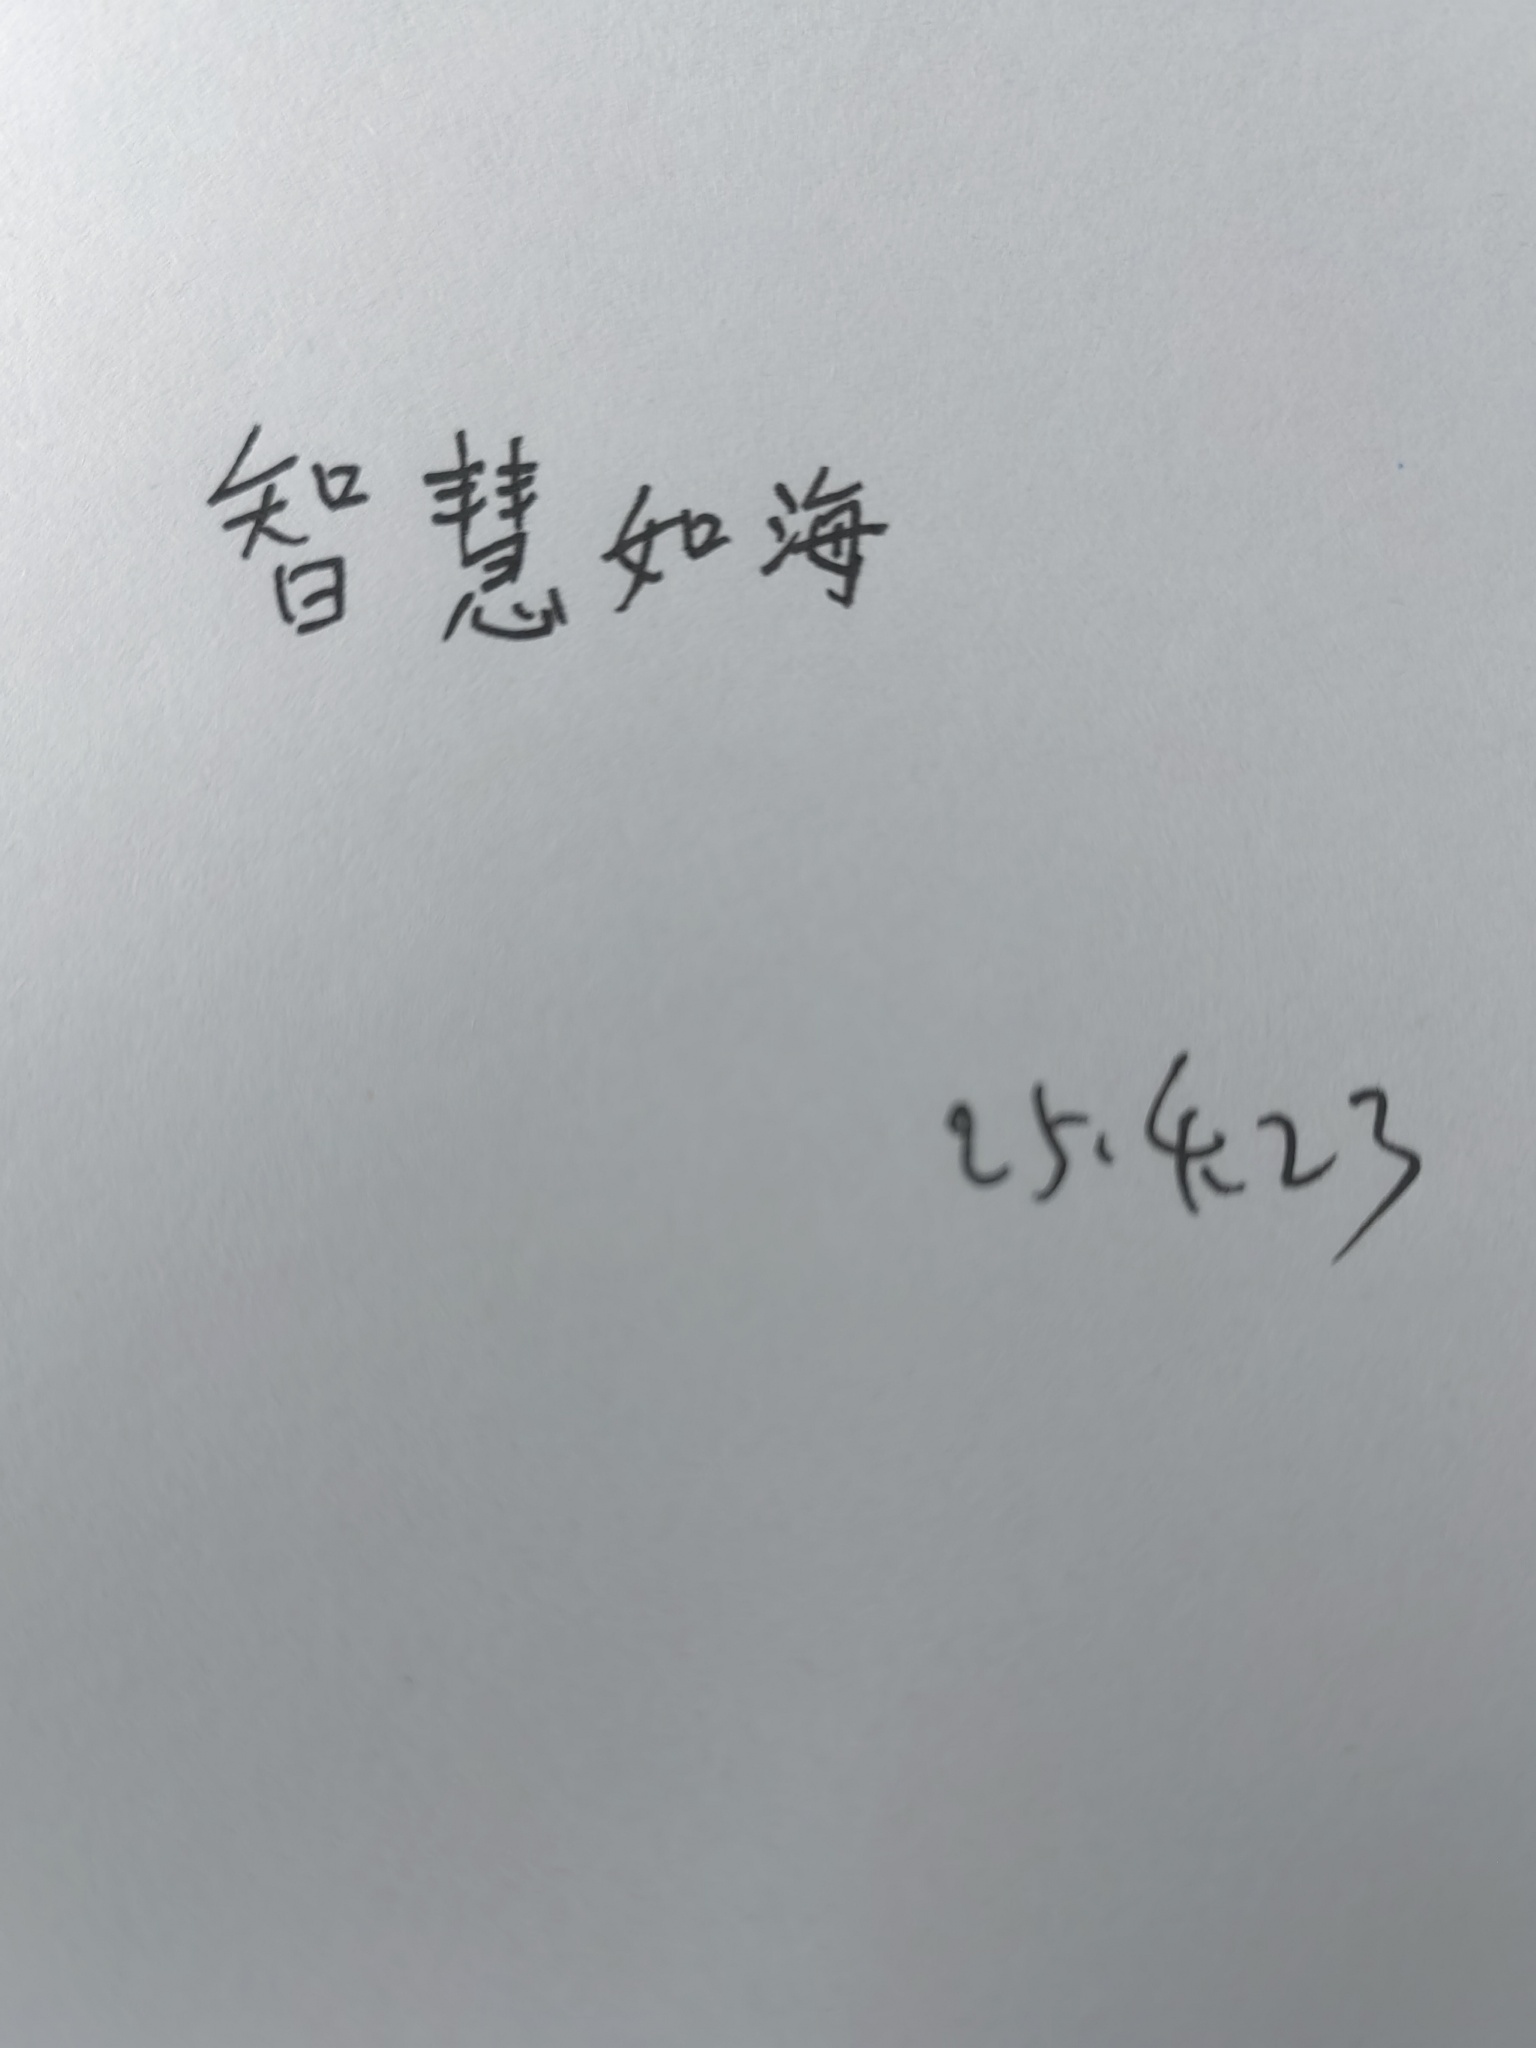 智慧如海
25.4.23